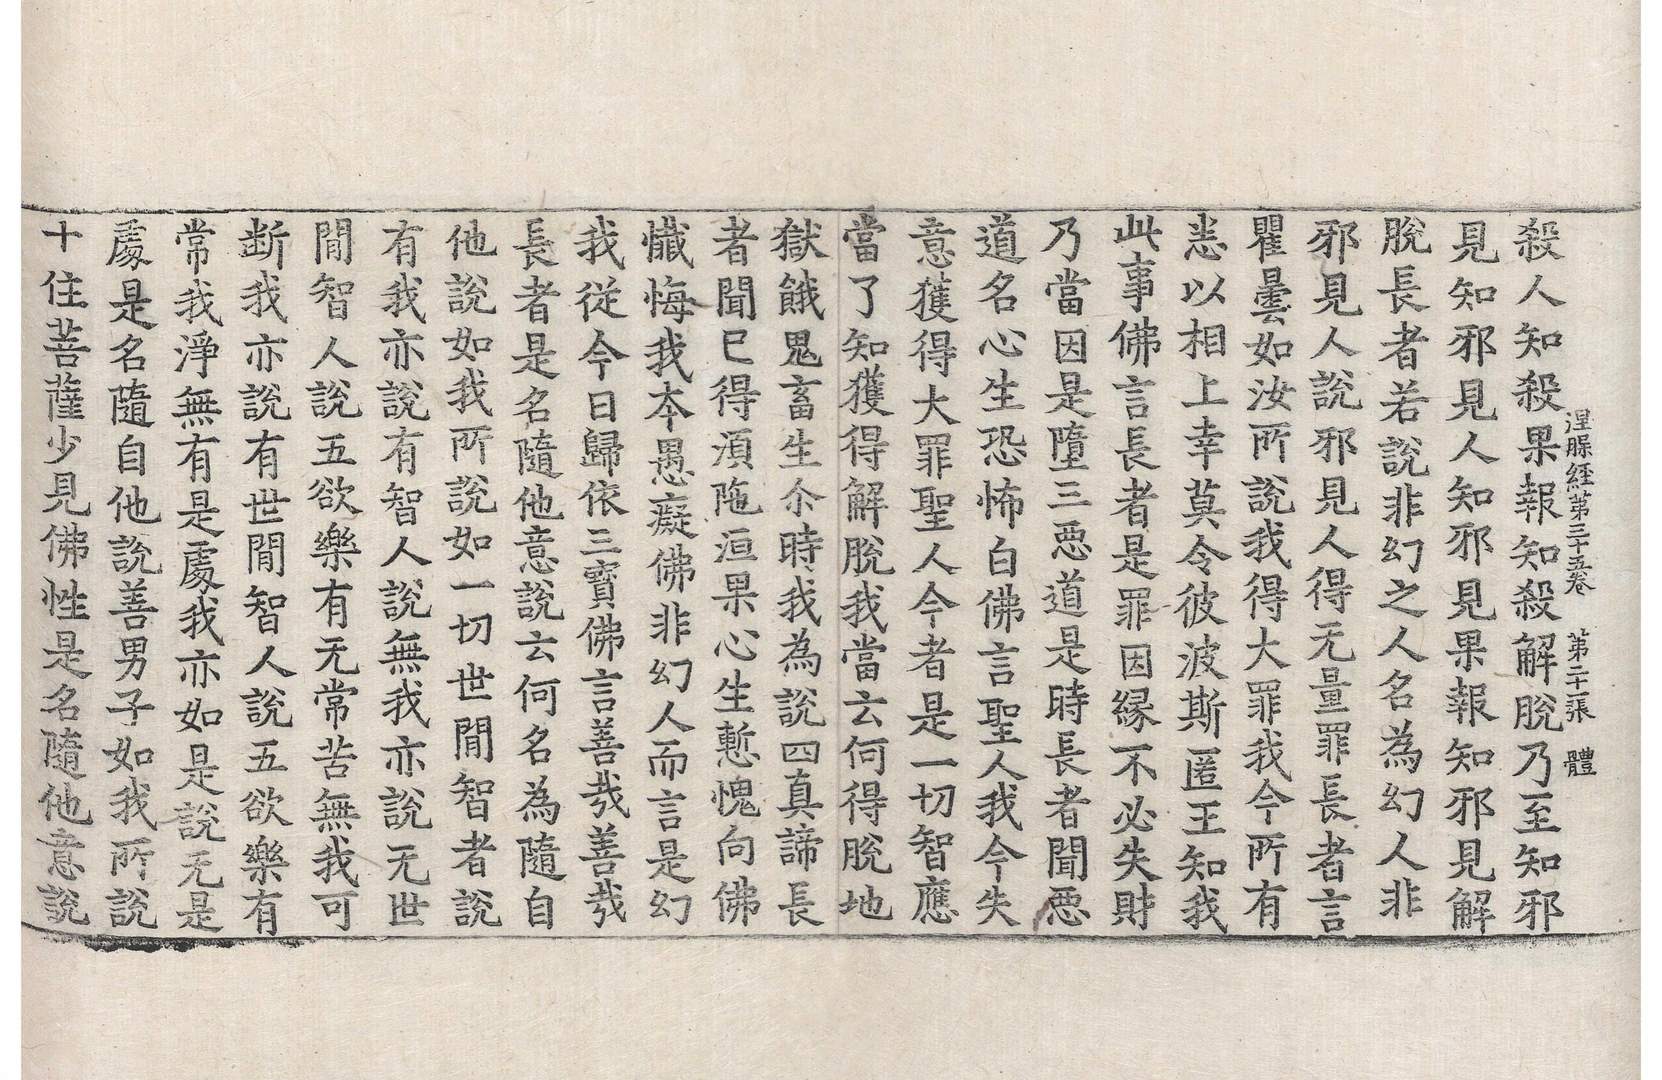 涅槃經第三十五卷　第二十一張　體
殺人知殺果報知殺解脫乃至知邪
見知邪見人知邪見果報知邪見解
脫長者若說非幻之人名為幻人非
邪見人說邪見人得无量罪長者言
瞿曇如汝所說我得大罪我今所有
悉以相上幸莫令彼波斯匿王知我
此事佛言長者是罪因縁不必失財
乃當因是墮三惡道是時長者聞惡
道名心生恐怖白佛言聖人我今失
意獲得大罪聖人今者是一切智應
當了知獲得解脫我當云何得脫地
獄餓鬼畜生尒時我為說四真諦長
者聞已得須陁洹果心生慙愧向佛
懺悔我夲愚癡佛非幻人而言是幻
我從今日歸依三寶佛言善㢤善㢤
長者是名隨他意說云何名為隨自
他說如我所說如一切世間智者說
有我亦說有智人說無我亦說无世
間智人說五欲樂有无常苦無我可
断我亦說有世間智人說五欲樂有
常我淨無有是處我亦如是說无是
處是名隨自他說善男子如我所說
十住菩薩少見佛性是名隨他意說